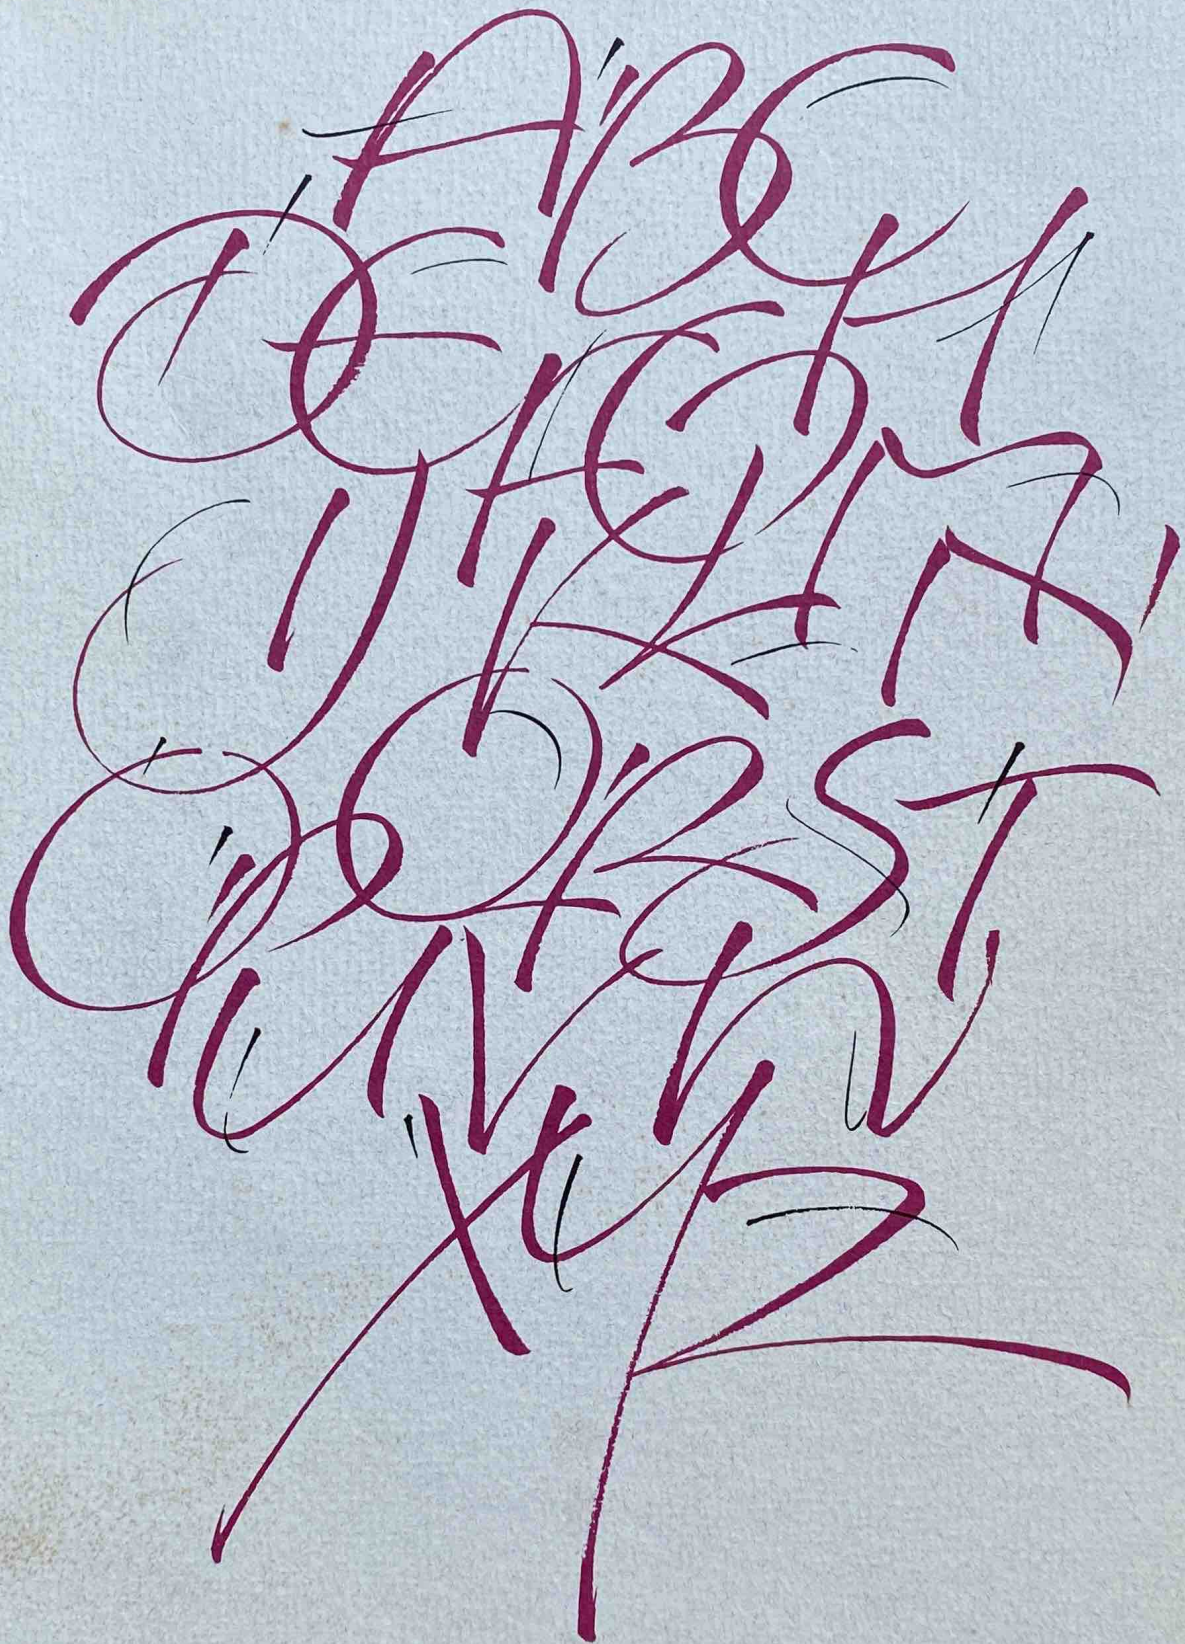 ABC
DEFGH
IJKLMN
OPQRST
UVW
XYZ